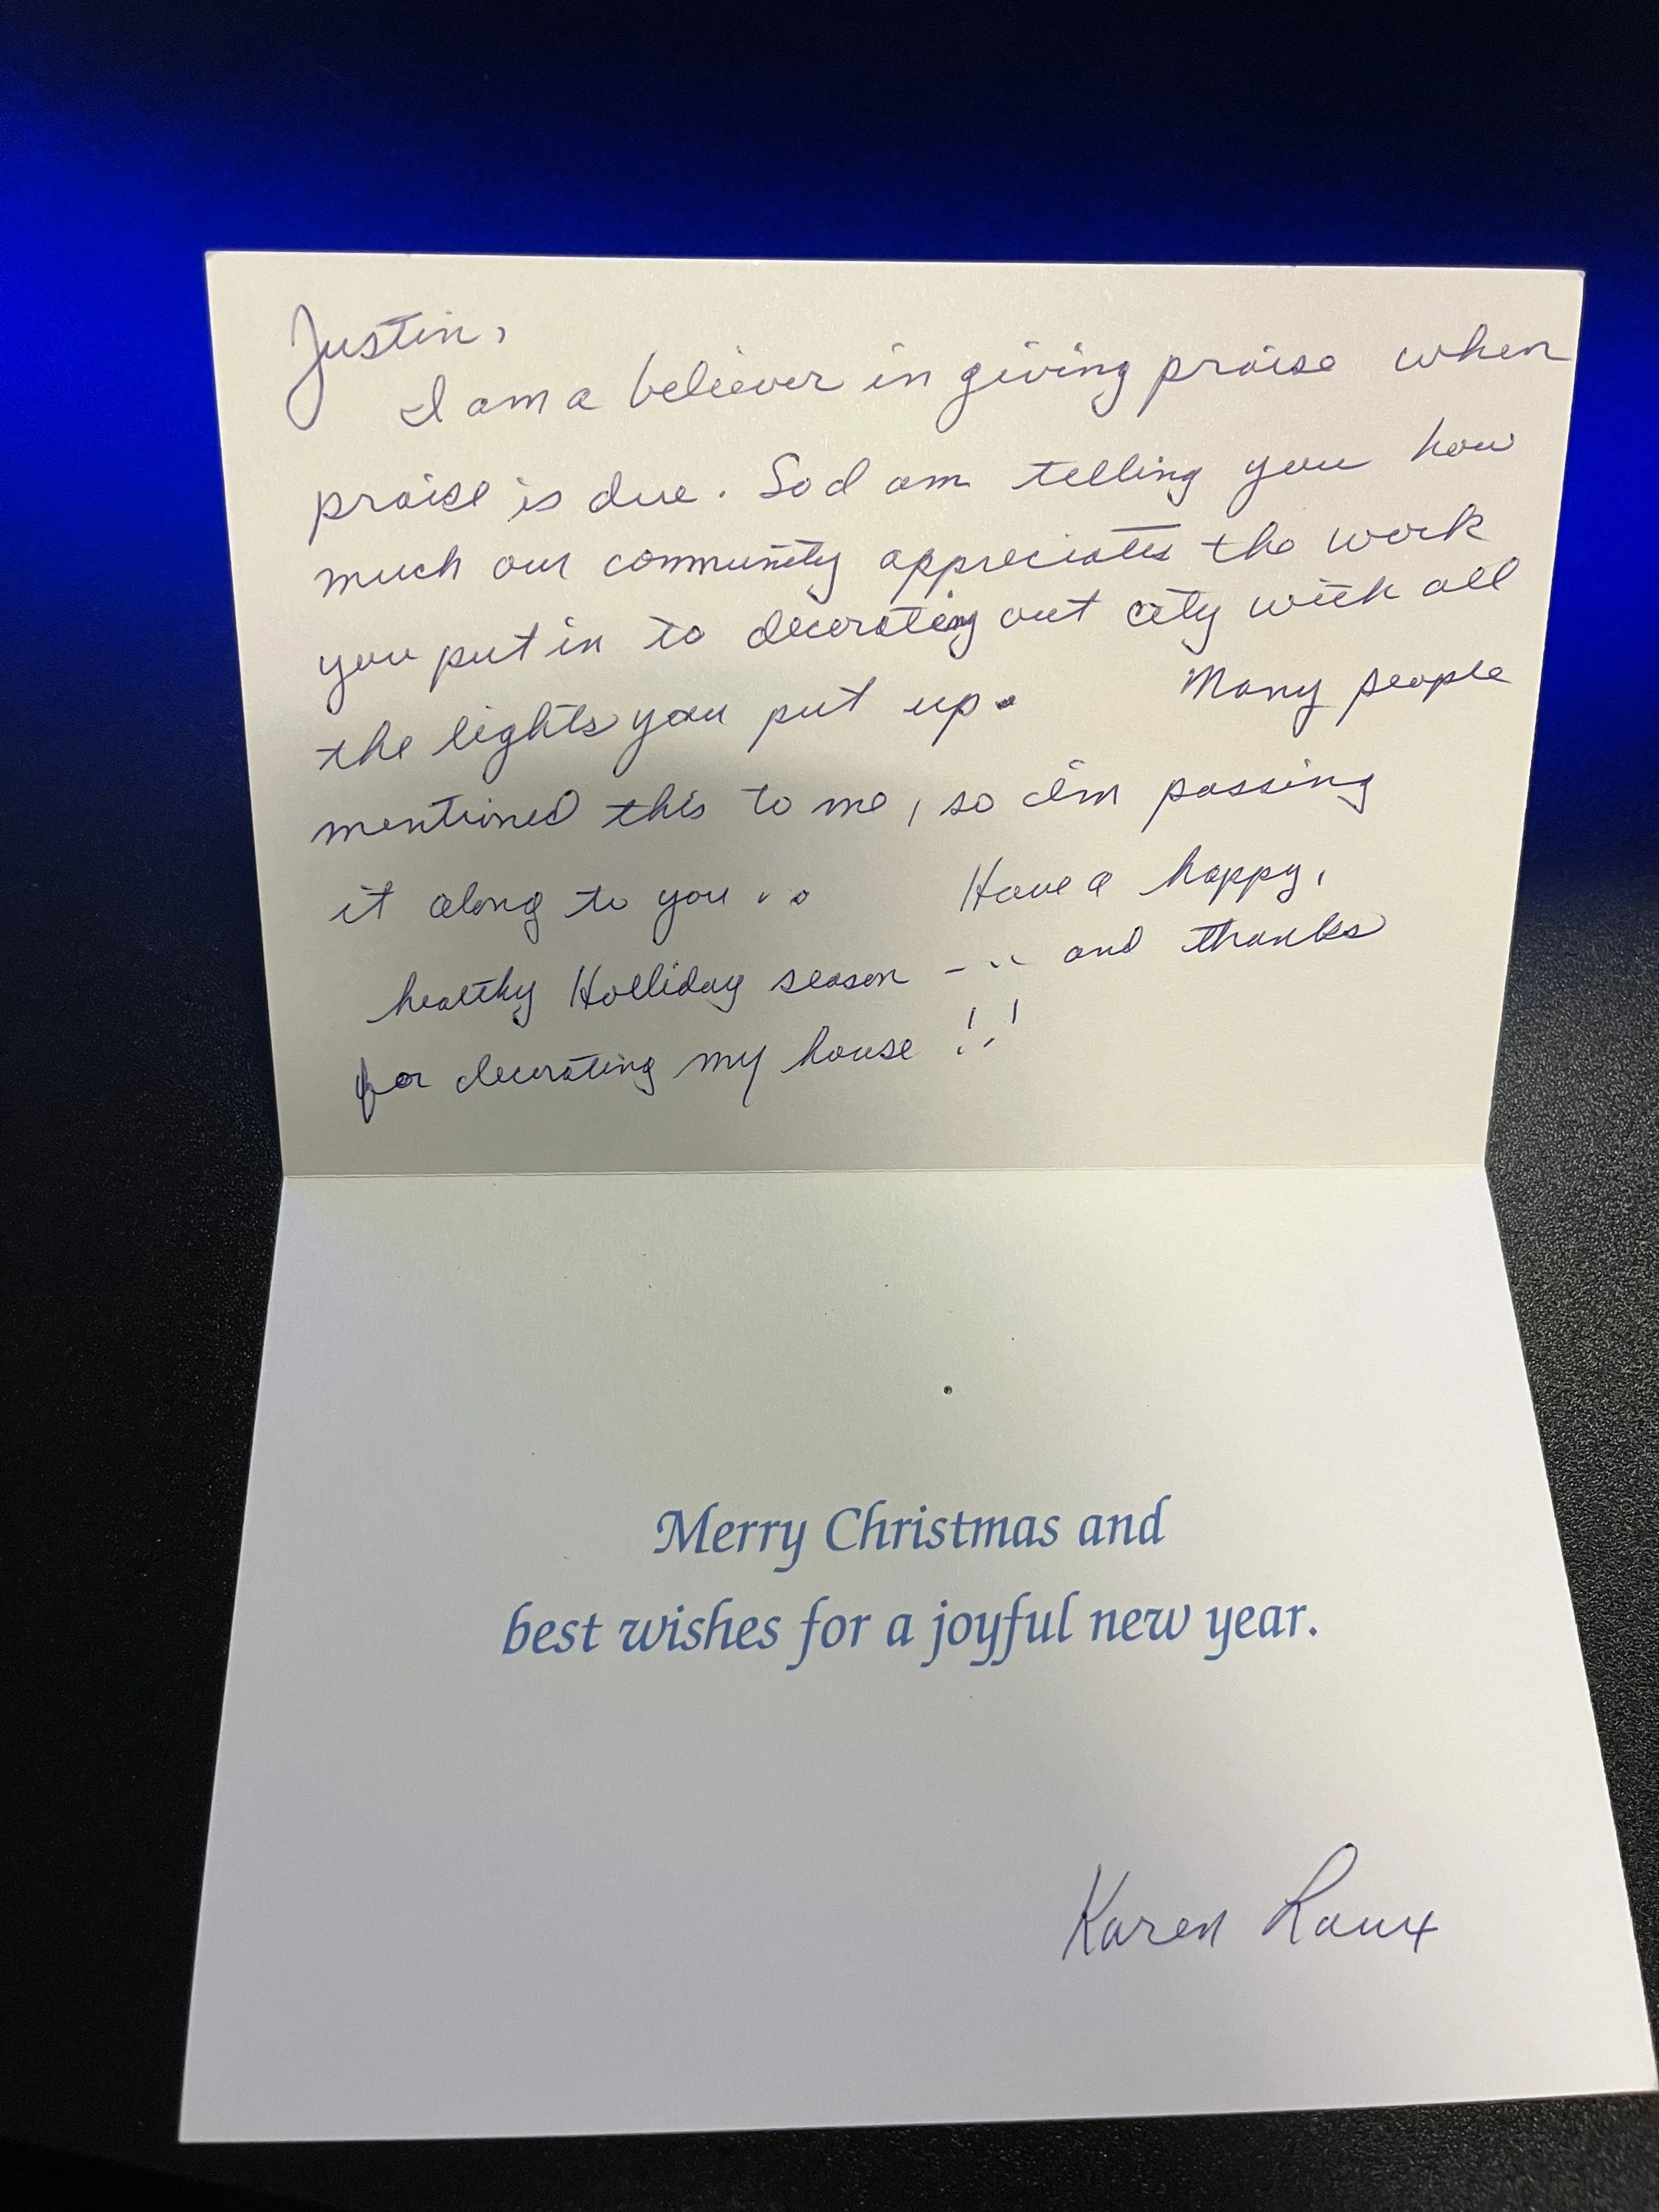 Justin,
I am a believer in giving praise when
praise is due. So I am telling you how
much our community appreciates the work
you put in to decorating out city with all
the lights you put up. Many people
mentioned this to me, so I'm passing
it along to you ..
Have a happy,
healthy Holliday season - .. and thanks
for decorating my house !!
Merry Christmas and
best wishes for a joyful new year.
Karen Roux